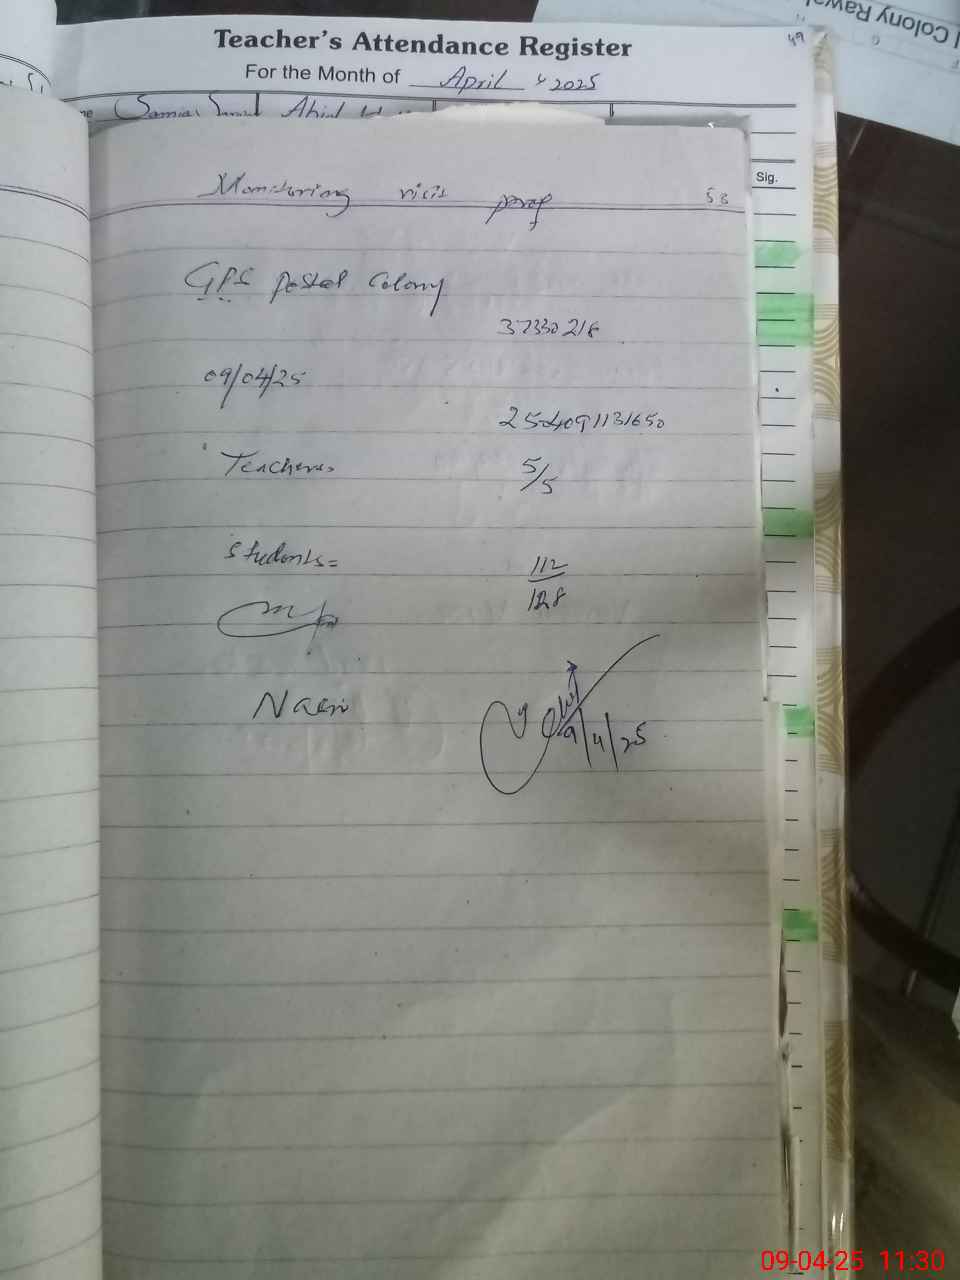 Colony Rawal
49
Teacher's Attendance Register
For the Month of April, 2025
Samia
Sig.
Monitoring visit prof
58
GPS Postal Colony
37330218
09/04/25
254091131650
Teachers 5/5
Students= 112/128
Naeem
9/4/25
09-04-25 11:30